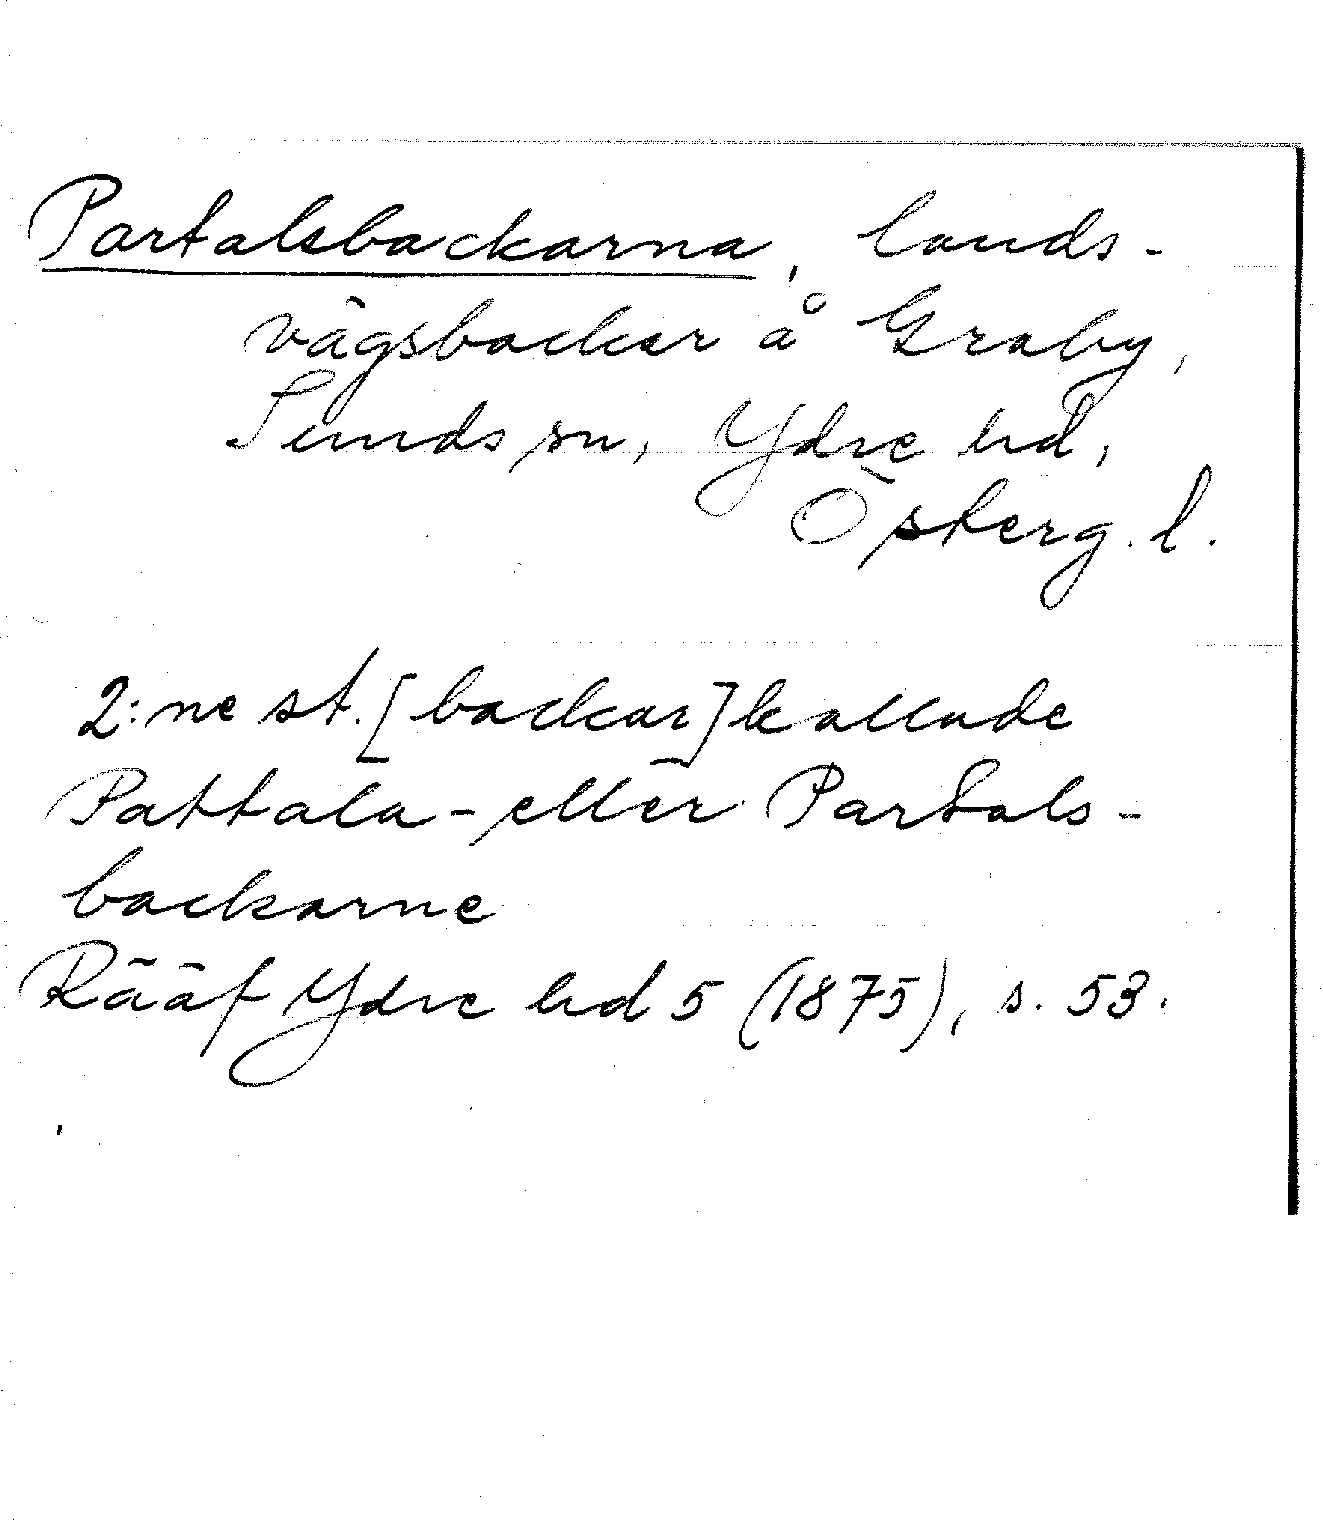 Partalsbackarna, lands-
vägsbackar å Graby,
Sunds sn, Ydre hd,
Österg. l.
2:ne st. [backar] kallade
Pattala- eller Partals-
backarne
Rääf Ydre hd 5 (1875), s. 53.